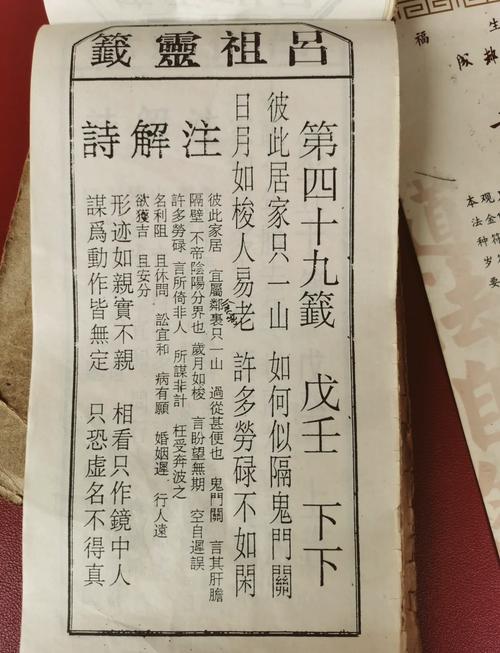 呂祖靈籤
第四十九籤 戊壬 下下
彼此居家只一山 如何似隔鬼門關
日月如梭人易老 許多勞碌不如閑
注解詩
彼此家居 宜屬鄰裏只一山 過從甚便也 鬼門關 言其肝膽
隔壁 不帝陰陽分界也 歲月如梭 言盼望無期 空自遲誤
許多勞碌 言所倚非人 所謀非計 枉受奔波之
名利阻 且休問 訟宜和 病有願 婚姻遲 行人遠
欲獲吉 且安分
形迹如親實不親 相看只作鏡中人
謀爲動作皆無定 只恐虛名不得真
生
福
本观
法金
种符
岁
要